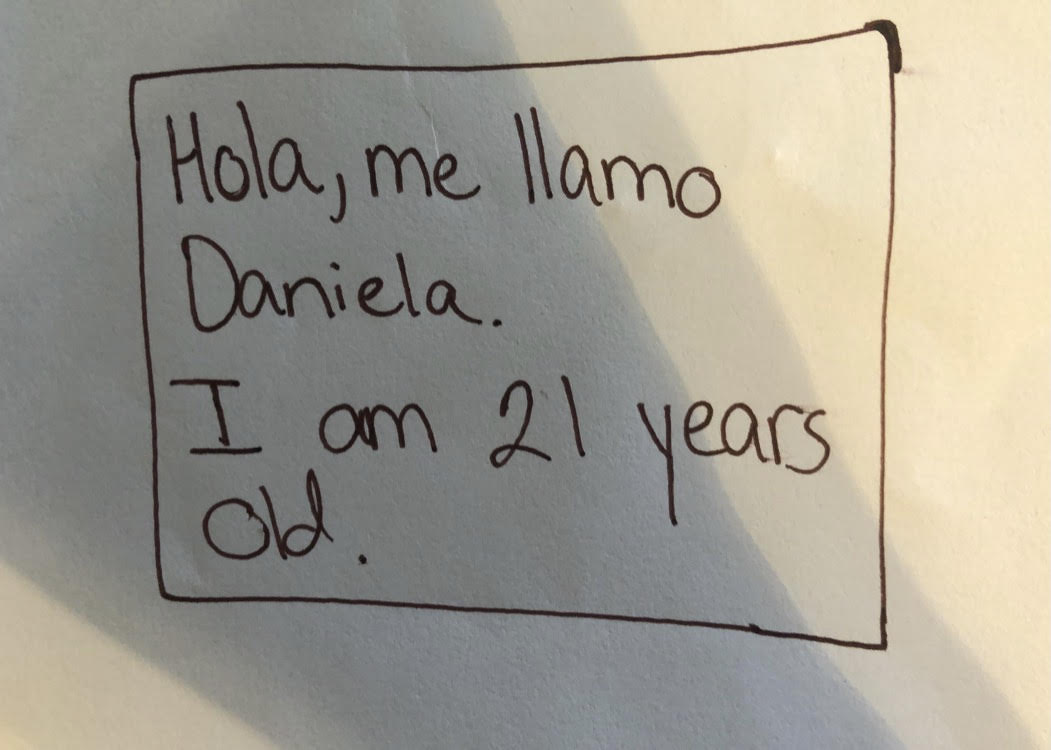 Hola, me llamo
Daniela.
I am 21 years
old.